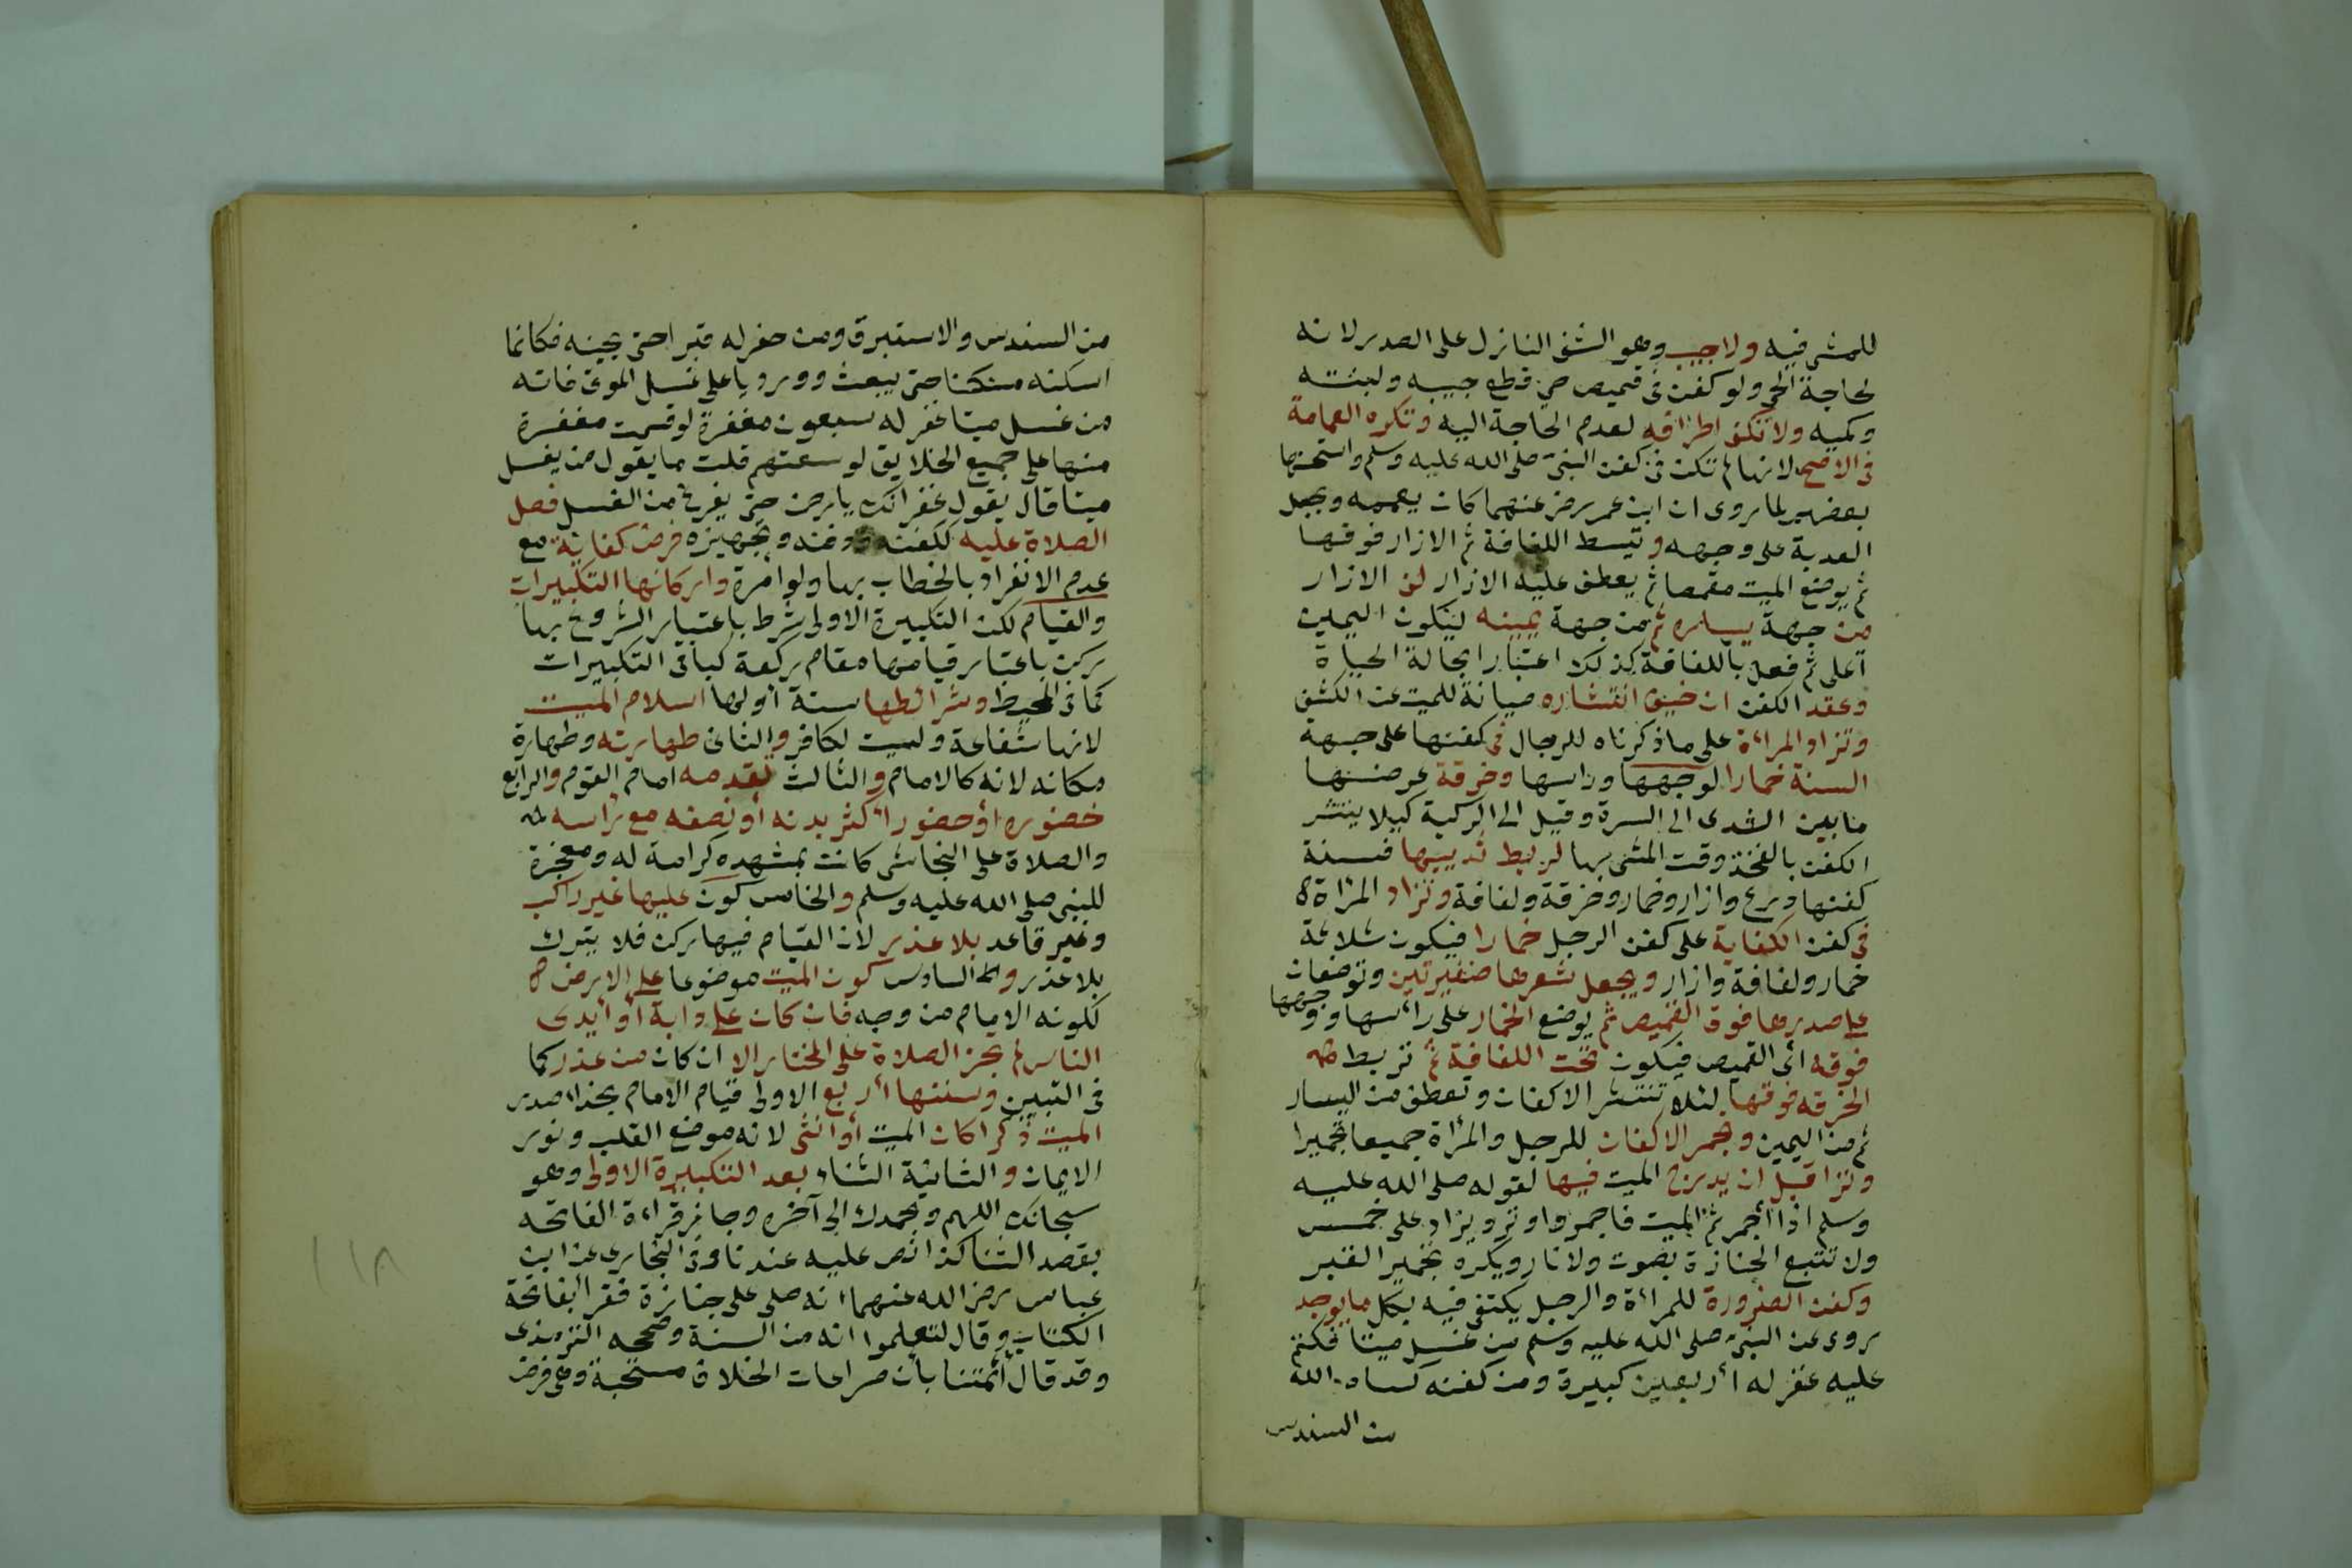 للمشى فيه ولاجيب وهو الشق النازل على الصدر لانه
لحاجة الحى ولو كفن فى قميص حى قطع جيبه ولبنته
وكميه ولا تكف اطرافه لعدم الحاجة اليه وتكره العمامة
فى الاصح لانها لم تكن فى كفن النبى صلى الله عليه وسلم واستحسنها
بعضهم لما روى ان ابن عمر رضى عنهما كان يعممه ويجعل
العدبة على وجهه وتبسط اللفافة ثم الازار فوقها
ثم يوضع الميت مقمصا ثم يعطف عليه الازار لف الازار
من جهة يساره ثم من جهة يمينه ليكون اليمين
اعلى ثم فعل باللفافة كذلك اعتبارا بحالة الحياة
وعقد الكفن ان خيف انتشاره صيانة للميت عن الكشف
وتزاد المراءة على ما ذكرناه للرجال فى كفنها على جهة
السنة خمارا لوجهها وراسها وخرقة عرضها
ما بين الثدى الى السرة وقيل الى الركبة كيلا ينتشر
الكفن بالفخذ وقت المشى بها لربط ثدييها فسنة
كفنها درع وازار وخمار وخرقة ولفافة وتزاد المرأة
فى كفن الكفاية على كفن الرجل خمارا فيكون ثلاثة
خمار ولفافة وازار ويجعل شعرها ضفيرتين وتوضعان
على صدرها فوق القميص ثم يوضع الخمار على رأسها ووجهها
فوقه اى القميص فيكون تحت اللفافة ثم تربط
الخرقه فوقها لئلا تنتشر الاكفان وتعطف من اليسار
ثم من اليمين وتجمر الاكفان للرجل والمرأة جميعا تجميرا
وترا قبل ان يدرج الميت فيها لقوله صلى الله عليه
وسلم اذا اجمرتم الميت فاجمروا وتر ويزاد على خمس
ولا تتبع الجنازة بصوت ولا نار ويكره تجمير القبر
وكفن الضرورة للمرأة والرجل يكتفى فيه بكل ما يوجد
روى عن النبى صلى الله عليه وسلم من غسل ميتا فكتم
عليه غفر له اربعين كبيرة ومن كفنه كساه الله
من السندس
من السندس والاستبرق ومن حفر له قبرا حتى يجنه فكانما
اسكنه مسكنا حتى يبعث وورد يا على غسل الموتى فانه
من غسل ميتا غفر له سبعون مغفرة لو قسمت مغفرة
منها على جميع الخلايق لوسعتهم قلت ما يقول من يغسل
ميتا قال يقول غفرانك يا رحمن حتى يفرغ من الغسل فصل
الصلاة عليه ككفنه ودفنه وتجهيزه فرض كفاية مع
عدم الانفراد بالخطاب بها ولو امرة واركانها التكبيرات
والقيام لكن التكبيرة الاولى شرط باعتبار الشروع بها
ركن باعتبار قيامها مقام ركعة كباقى التكبيرات
كما فى المحيط وشرائطها ستة أولها اسلام الميت
لانها شفاعة وليست لكافر والثانى طهارته وطهارة
مكانه لانه كالامام والثالث تقدمه امام القوم والرابع
حضوره أوحضور اكثر بدنه أو نصفه مع راسه
والصلاة على النجاشى كانت بمشهده كرامة له ومعجزة
للنبى صلى الله عليه وسلم والخامس كون عليها غير راكب
وغير قاعد بلا عذر لان القيام فيها ركن فلا يترك
بلا عذر والسادس كون الميت موضوعا على الارض
لكونه الامام من وجه فان كان على دابة أو أيدى
الناس لم تجز الصلاة على المختار الا ان كان من عذر كما
فى التبيين وسننها أربع الاولى قيام الامام بحذاء صدر
الميت ذكرا كان الميت أو أنثى لانه موضع القلب ونور
الايمان والثانية الثناء بعد التكبيرة الاولى وهو
سبحانك اللهم وبحمدك الى آخره وجاز قراءة الفاتحه
بقصد الثنا كذا نص عليه عندنا وفى البخارى عن ابن
عباس رضى الله عنهما انه صلى على جنازة فقرأ بفاتحة
الكتاب وقال لتعلموا انه من السنة وصححه الترمذى
وقد قال أئمتنا بأن مراعات الخلاف مستحبة وهى فرض
١١٨